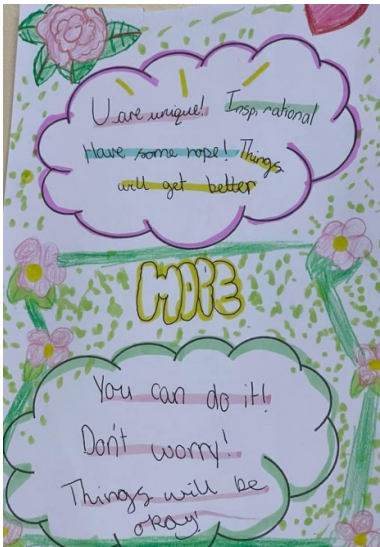 U are unique! Inspirational
Have some hope! Things
will get better
HOPE
You can do it!
Don't worry!
Things will be
okay!